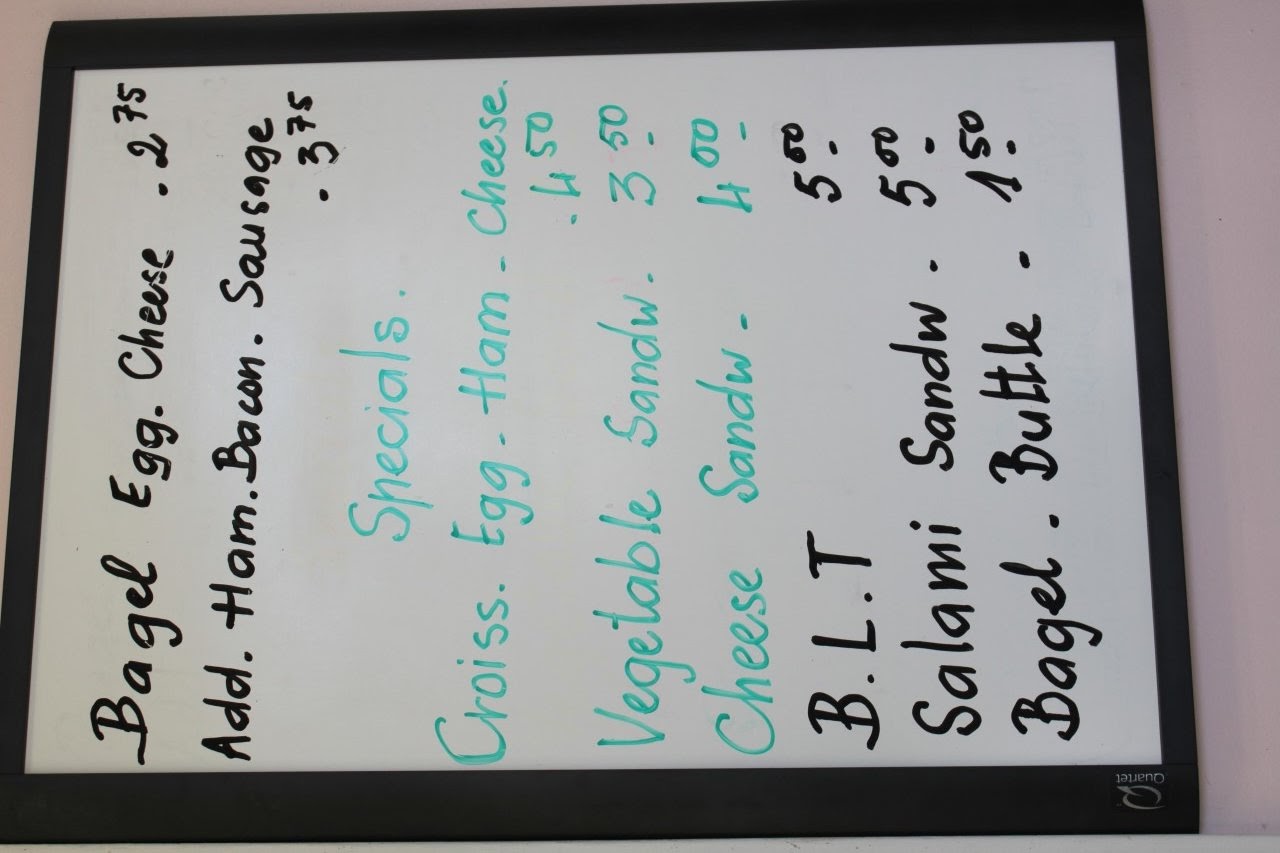 Bagel Egg. Cheese . 2 75
Add. Ham. Bacon. Sausage
. 3 75
Specials.
Croiss. Egg - Ham - Cheese.
. 4 50
Vegetable Sandw. 3 50
Cheese Sandw - 4 00
B.L.T 5 00
Salami Sandw. 5 00
Bagel. Buttle . 1 50
Quartet